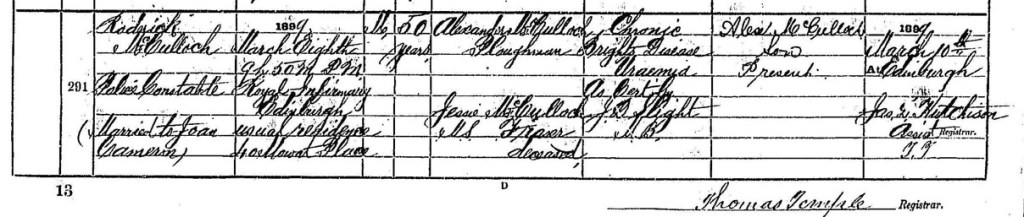 Rodrick
McCulloch
291
Police Constable
(Married to Joan
Cameron)
1899
March Eighth
9h. 50m. P.M.
Royal Infirmary
Edinburgh
usual residence
Place
M.
50
years
Alexander McCulloch
Ploughman
Jessie McCulloch
M.S. Fraser
deceased
Chronic
Brights Disease
Uraemia
As Cert. by
M.B.
Alexr McCulloch
Son
Present.
1899
March 10th
At Edinburgh
Jas. Hutchison
Assist Registrar.
T.T.
13
D
Thomas Temple Registrar.